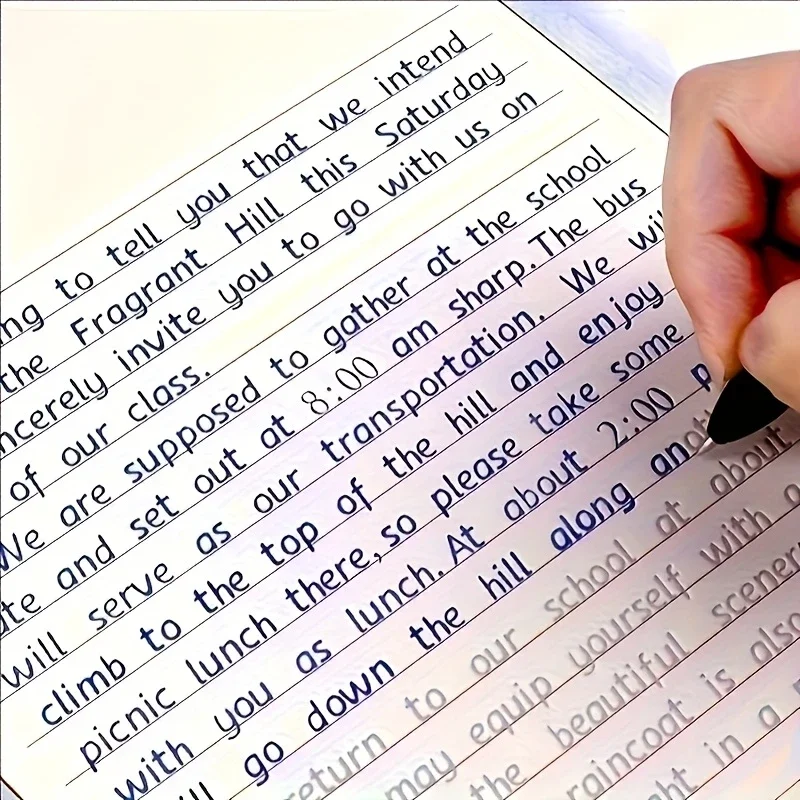 to tell you that we intend
the Fragrant Hill this Saturday
invite you to go with us on
of our class.
We are supposed to gather at the school
and set out at 8:00 am sharp. The bus
will serve as our transportation. We
climb to the top of the hill and enjoy
picnic lunch there, so please take some
with you as lunch. At about 2:00
go down the hill along
to our school at about
may equip yourself with a
the beautiful
raincoat is also
in a